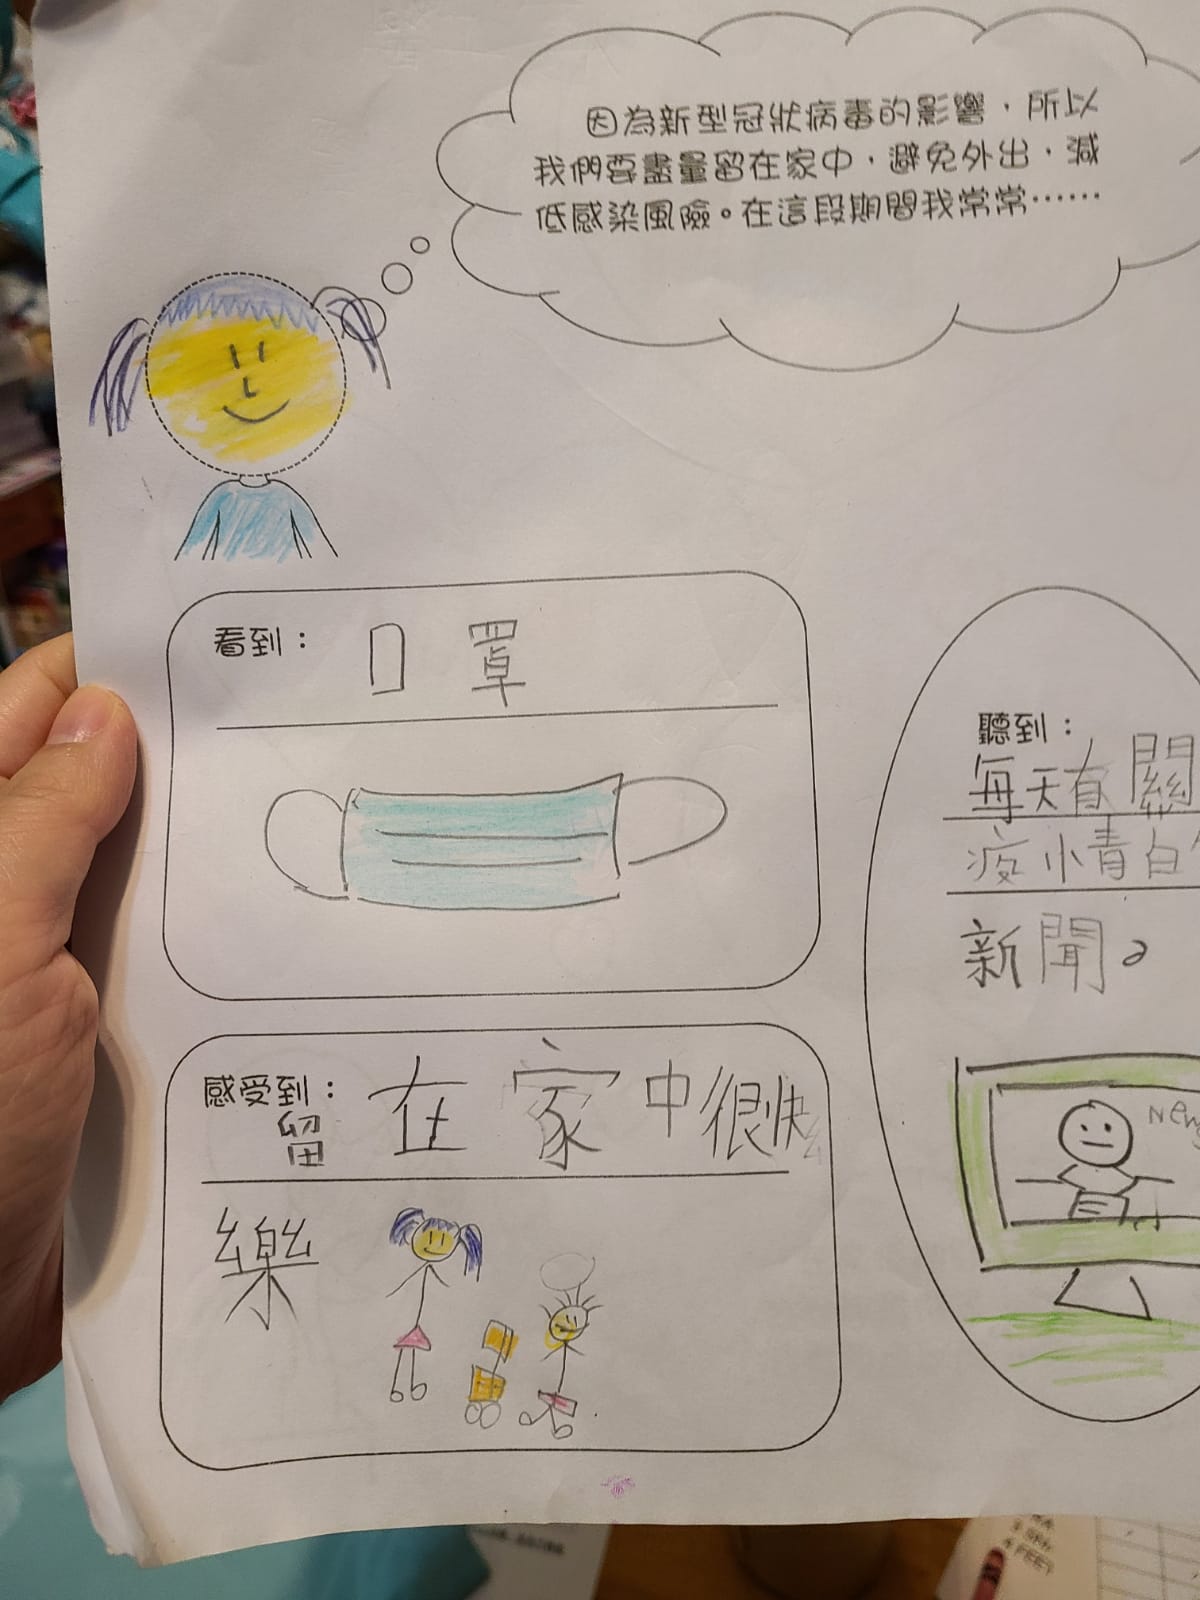 因為新型冠狀病毒的影響，所以
我們要盡量留在家中，避免外出，減
低感染風險。在這段期間我常常……
看到：口罩
聽到：
每天有關
疫小青白
新聞。
News
感受到：
留在家中很快
樂
4 FEET